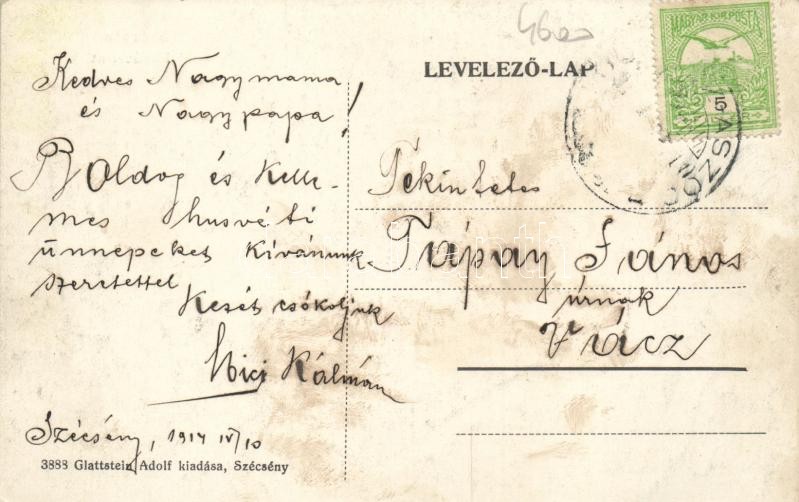 4600
LEVELEZŐ-LAP
MAGYAR KIR. POSTA
5
Kedves Nagymama
és Nagypapa!
Boldog és Kelle-
mes husvéti
ünnepeket Kívánunk
szeretettel
Kezét csókoljuk
Mici Kálmán
Szécsény, 1914 IV/10
Tekintetes
Tápay János
úrnak
Vácz
3888 Glattstein Adolf kiadása, Szécsény